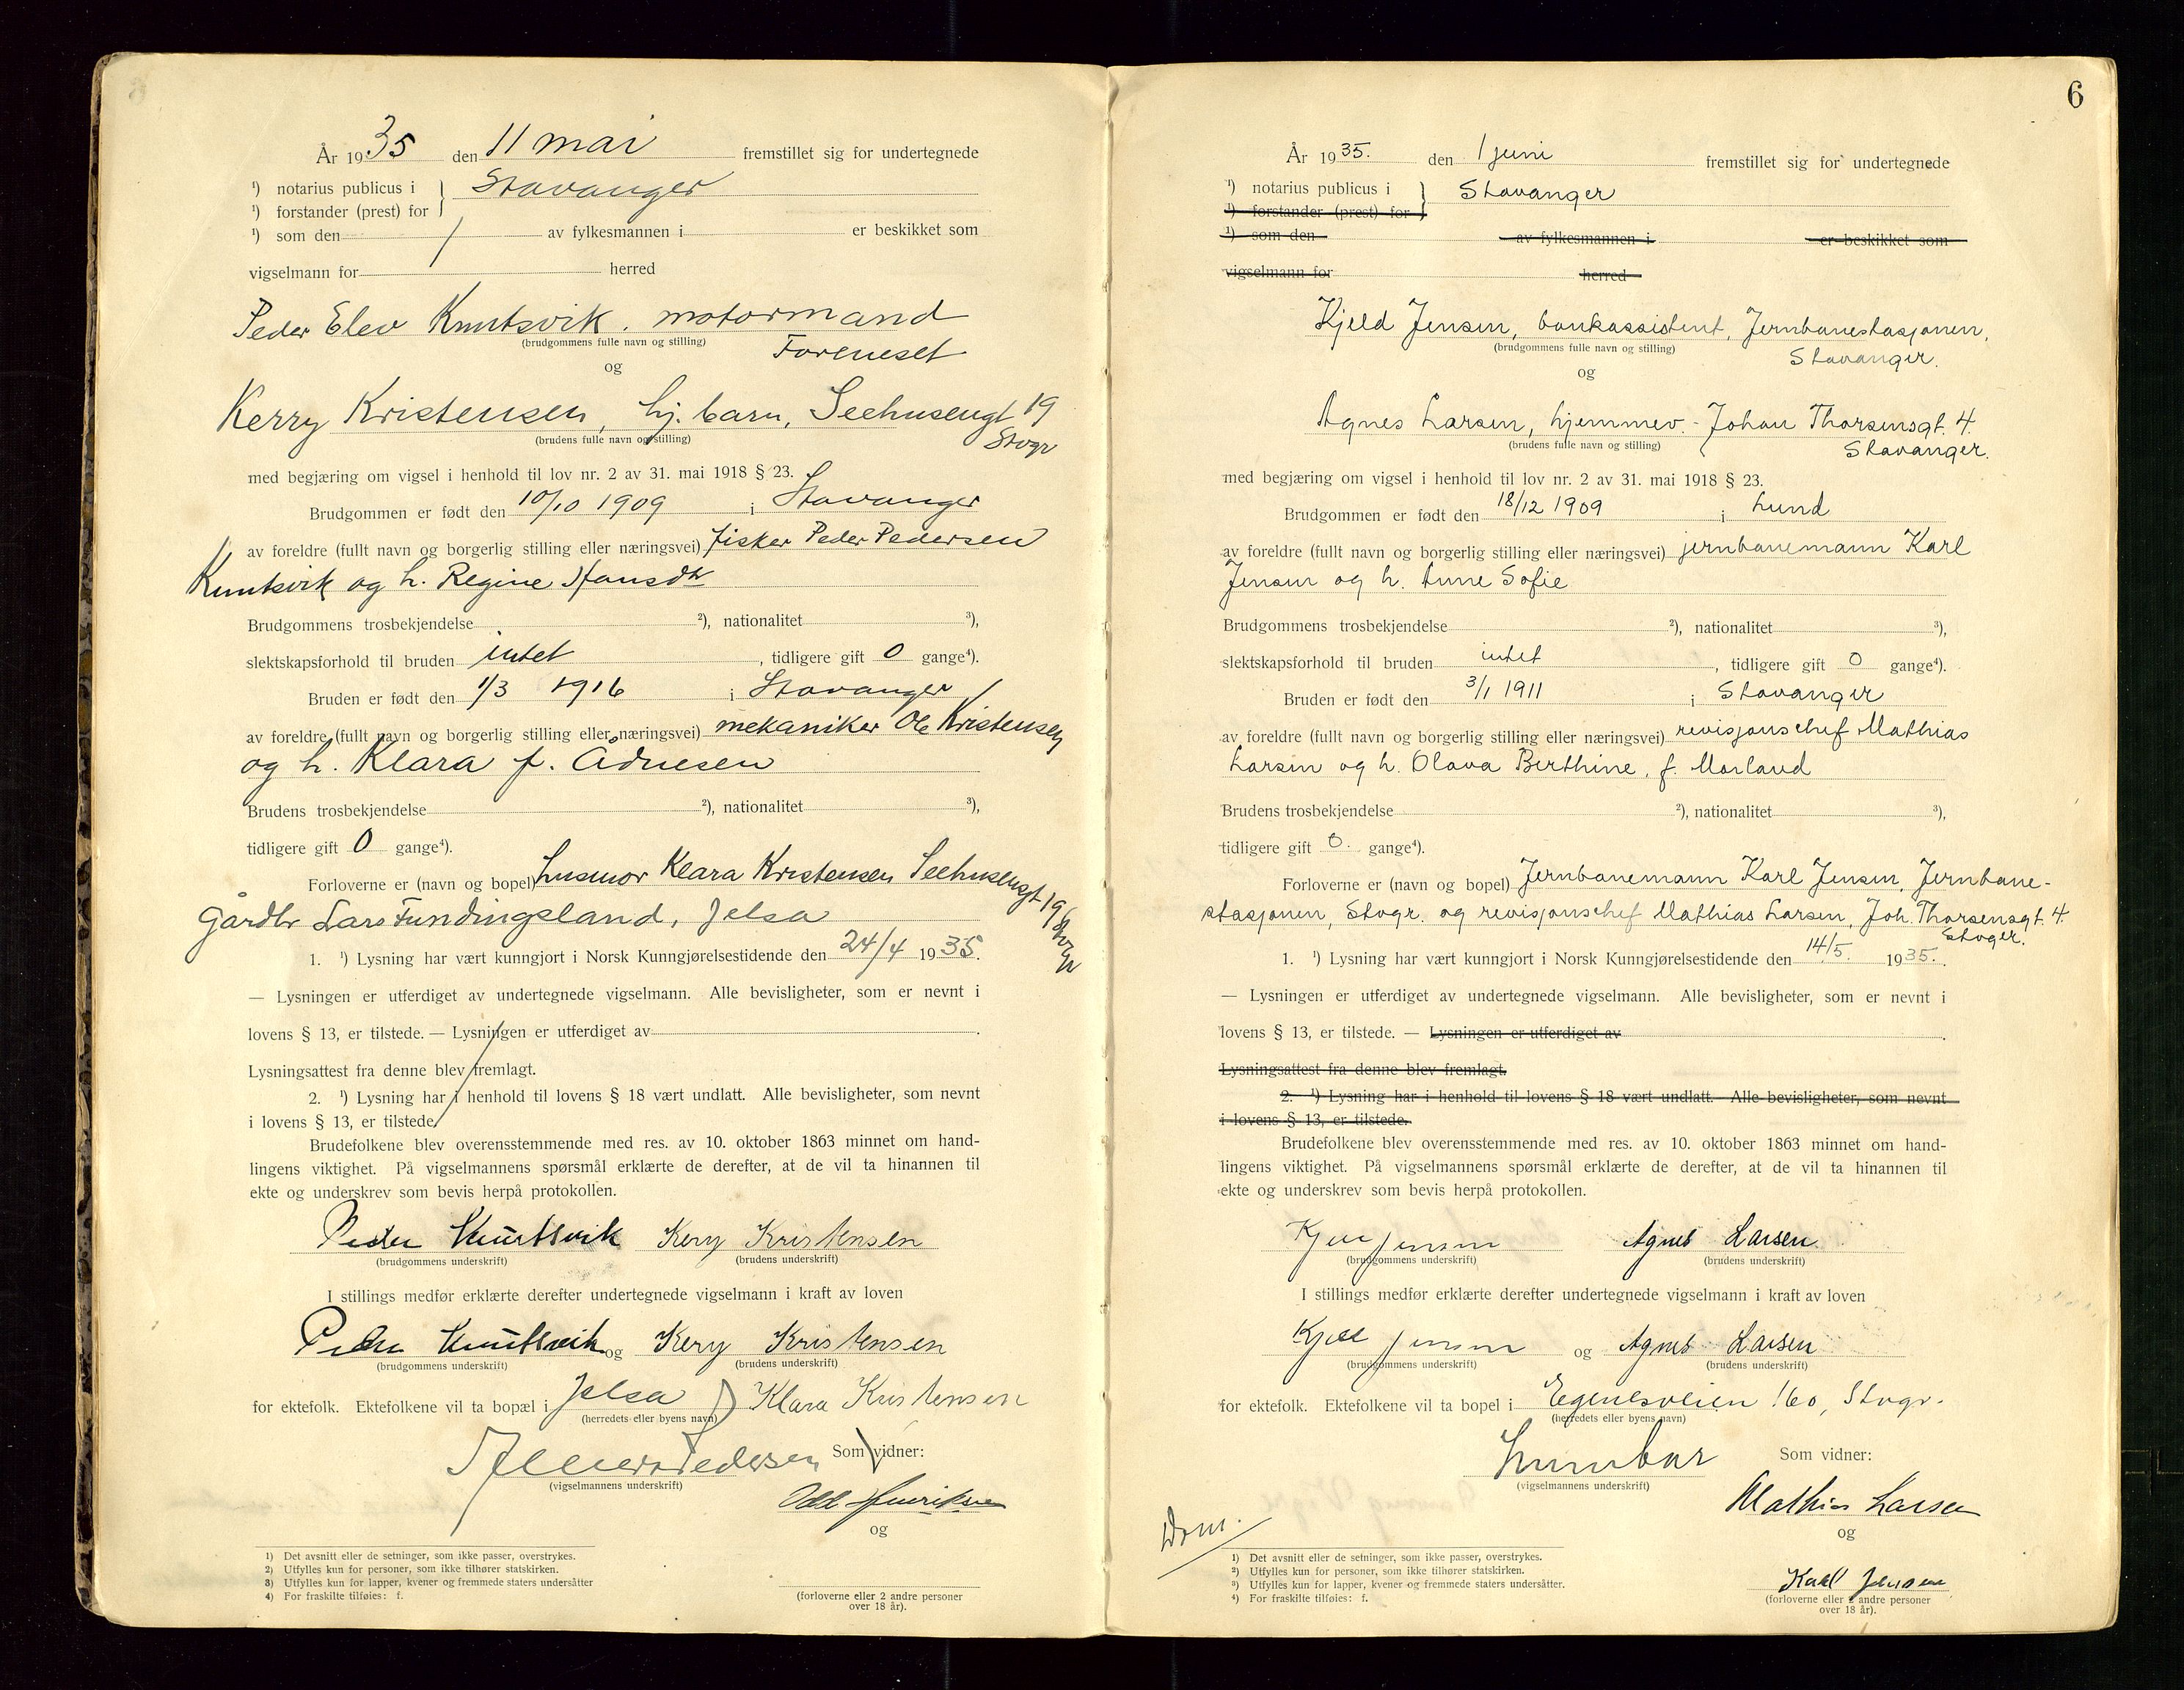 År 1935 den 11 mai fremstillet sig for undertegnede
¹) notarius publicus i } Stavanger
¹) forstander (prest) for
¹) som den av fylkesmannen i er beskikket som
vigselmann for herred
Peder Elev Knutsvik. motormand
(brudgommens fulle navn og stilling)
Foreneset
og
Kerry Kristensen, hj. barn, Seehusengt 19
(brudens fulle navn og stilling)
Stvgr
med begjæring om vigsel i henhold til lov nr. 2 av 31. mai 1918 § 23.
Brudgommen er født den 10/10 1909 i Stavanger
av foreldre (fullt navn og borgerlig stilling eller næringsvei) fisker Peder Pedersen
Knutsvik og h. Regine Hansdtr
Brudgommens trosbekjendelse ²), nationalitet ³),
slektskapsforhold til bruden intet, tidligere gift 0 gange⁴).
Bruden er født den 1/3 1916 i Stavanger
av foreldre (fullt navn og borgerlig stilling eller næringsvei) mekaniker Ole Kristensen
og h. Klara f. Adnesen
Brudens trosbekjendelse ²), nationalitet ³),
tidligere gift 0 gange⁴).
Forloverne er (navn og bopel) husmor Klara Kristensen Seehusengt 19 Stvgr
Gårdbr Lars Fundingsland, Jelsa
1. ¹) Lysning har vært kunngjort i Norsk Kunngjørelsestidende den 24/4 1935.
— Lysningen er utferdiget av undertegnede vigselmann. Alle bevisligheter, som er nevnt i
lovens § 13, er tilstede. — Lysningen er utferdiget av .
Lysningsattest fra denne blev fremlagt.
2. ¹) Lysning har i henhold til lovens § 18 vært undlatt. Alle bevisligheter, som nevnt
i lovens § 13, er tilstede.
Brudefolkene blev overensstemmende med res. av 10. oktober 1863 minnet om hand-
lingens viktighet. På vigselmannens spørsmål erklærte de derefter, at de vil ta hinannen til
ekte og underskrev som bevis herpå protokollen.
Peder Knutsvik Kery Kristensen
(brudgommens underskrift) (brudens underskrift)
I stillings medfør erklærte derefter undertegnede vigselmann i kraft av loven
Peder Knutsvik og Kery Kristensen
(brudgommens underskrift) (brudens underskrift)
for ektefolk. Ektefolkene vil ta bopæl i Jelsa Klara Kristensen
(herredets eller byens navn)
Pedersen Som vidner:
(vigselmannens underskrift)
Odd Henriksen
og
1) Det avsnitt eller de setninger, som ikke passer, overstrykes.
2) Utfylles kun for personer, som ikke tilhører statskirken.
3) Utfylles kun for lapper, kvener og fremmede staters undersåtter
4) For fraskilte tilføies: f.
(forloverne eller 2 andre personer
over 18 år).
6
År 1935. den 1 juni fremstillet sig for undertegnede
¹) notarius publicus i } Stavanger
¹) forstander (prest) for
¹) som den av fylkesmannen i er beskikket som
vigselmann for herred
Kjeld Jensen, bankassistent, Jernbanestasjonen,
(brudgommens fulle navn og stilling)
Stavanger.
og
Agnes Larsen, hjemmev. - Johan Thorsensgt. 4.
(brudens fulle navn og stilling)
Stavanger.
med begjæring om vigsel i henhold til lov nr. 2 av 31. mai 1918 § 23.
Brudgommen er født den 18/12 1909 i Lund
av foreldre (fullt navn og borgerlig stilling eller næringsvei) jernbanemann Karl
Jensen og h. Anne Sofie
Brudgommens trosbekjendelse ²), nationalitet ³),
slektskapsforhold til bruden intet, tidligere gift 0 gange⁴).
Bruden er født den 3/1 1911 i Stavanger
av foreldre (fullt navn og borgerlig stilling eller næringsvei) revisjonschef Mathias
Larsen og h. Olava Berthine, f. Morland
Brudens trosbekjendelse ²), nationalitet ³),
tidligere gift 0. gange⁴).
Forloverne er (navn og bopel) Jernbanemann Karl Jensen, Jernbane-
stasjonen, Stvgr. og revisjonschef Mathias Larsen, Joh. Thorsensgt. 4.
Stvger.
1. ¹) Lysning har vært kunngjort i Norsk Kunngjørelsestidende den 14/5. 1935.
— Lysningen er utferdiget av undertegnede vigselmann. Alle bevisligheter, som er nevnt i
lovens § 13, er tilstede. — Lysningen er utferdiget av .
Lysningsattest fra denne blev fremlagt.
2. ¹) Lysning har i henhold til lovens § 18 vært undlatt. Alle bevisligheter, som nevnt
i lovens § 13, er tilstede.
Brudefolkene blev overensstemmende med res. av 10. oktober 1863 minnet om hand-
lingens viktighet. På vigselmannens spørsmål erklærte de derefter, at de vil ta hinannen til
ekte og underskrev som bevis herpå protokollen.
Kjell Jensen Agnes Larsen
(brudgommens underskrift) (brudens underskrift)
I stillings medfør erklærte derefter undertegnede vigselmann i kraft av loven
Kjell Jensen og Agnes Larsen
(brudgommens underskrift) (brudens underskrift)
for ektefolk. Ektefolkene vil ta bopel i Egenesveien 160, Stvgr.
(herredets eller byens navn)
Som vidner:
(vigselmannens underskrift)
Mathias Larsen
og
Dom.
1) Det avsnitt eller de setninger, som ikke passer, overstrykes.
2) Utfylles kun for personer, som ikke tilhører statskirken.
3) Utfylles kun for lapper, kvener og fremmede staters undersåtter.
4) For fraskilte tilføies: f.
Karl Jensen
(forloverne eller 2 andre personer
over 18 år).